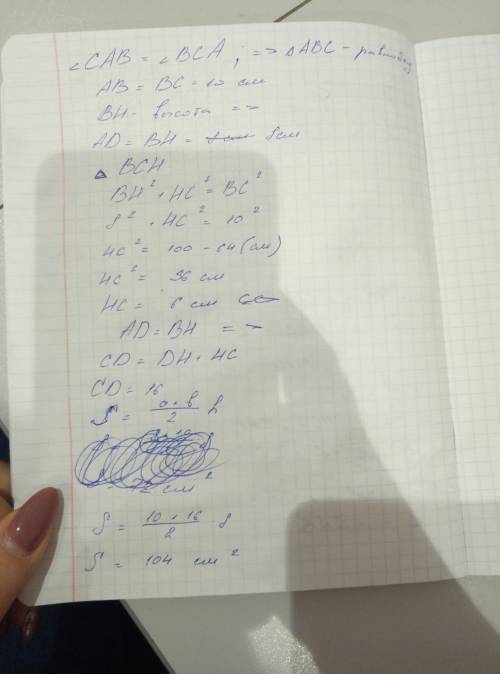 ∠CAB = ∠BCA ; => △ABC - равнобед
AB = BC = 10 см
BH - высота =>
AD = BH = 8см
△ BCH
BH² + HC² = BC²
8² + HC² = 10²
HC² = 100 - 64 (см)
HC² = 36 см
HC = 6 см
AD = BH =>
CD = DH + HC
CD = 16
S = \frac{a+b}{2} h
= 72 см²
S = \frac{10+16}{2} 8
S = 104 см²